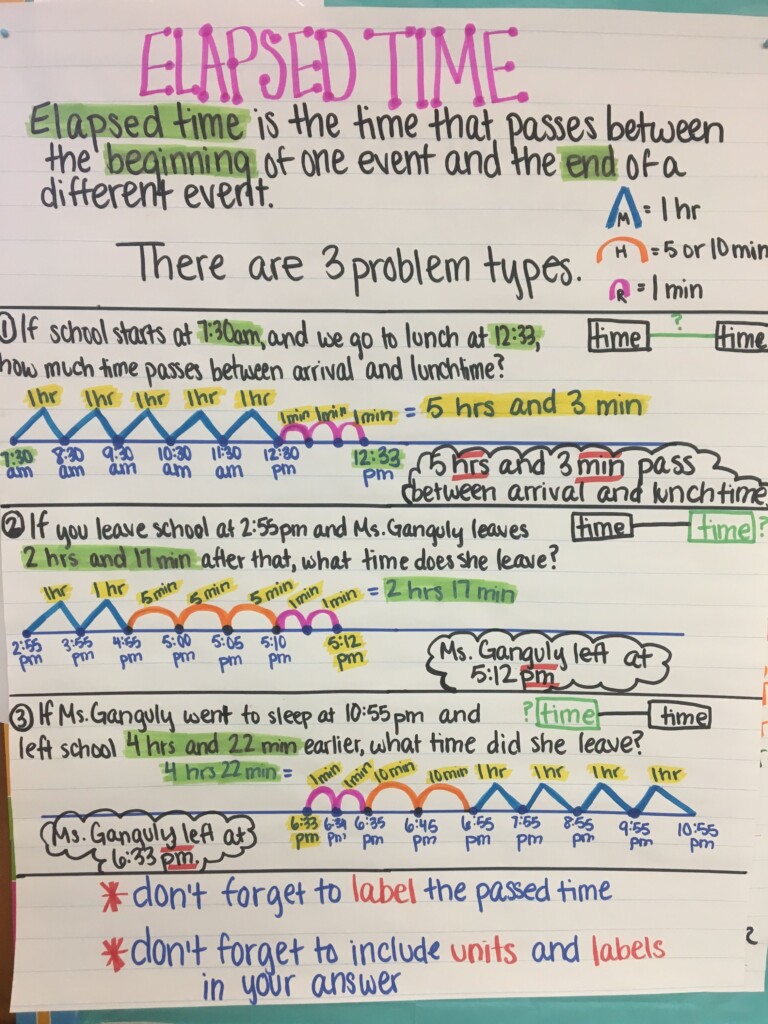 ELAPSED TIME
Elapsed time is the time that passes between
the beginning of one event and the end of a
different event.
M = 1 hr
There are 3 problem types.
H = 5 or 10 min
R = 1 min
① If school starts at 7:30am, and we go to lunch at 12:33,
how much time passes between arrival and lunchtime?
time ? time
1hr 1hr 1hr 1hr 1hr 1min 1min 1min = 5 hrs and 3 min
7:30 am 8:30 am 9:30 am 10:30 am 11:30 am 12:30 pm 12:33 pm
5 hrs and 3 min pass
between arrival and lunchtime
② If you leave school at 2:55pm and Ms. Ganguly leaves
2 hrs and 17 min after that, what time does she leave?
time time?
1hr 1hr 5min 5 min 5 min 1min 1min = 2 hrs 17 min
2:55 pm 3:55 pm 4:55 pm 5:00 pm 5:05 pm 5:10 pm 5:12 pm
Ms. Ganguly left at
5:12 pm
③ If Ms. Ganguly went to sleep at 10:55 pm and
left school 4 hrs and 22 min earlier, what time did she leave?
? time time
4 hrs 22 min = 1min 1min 10min 10min 1hr 1hr 1hr 1hr
6:33 pm 6:34 pm 6:35 pm 6:45 pm 6:55 pm 7:55 pm 8:55 pm 9:55 pm 10:55 pm
Ms. Ganguly left at
6:33 pm.
* don't forget to label the passed time
* don't forget to include units and labels
in your answer